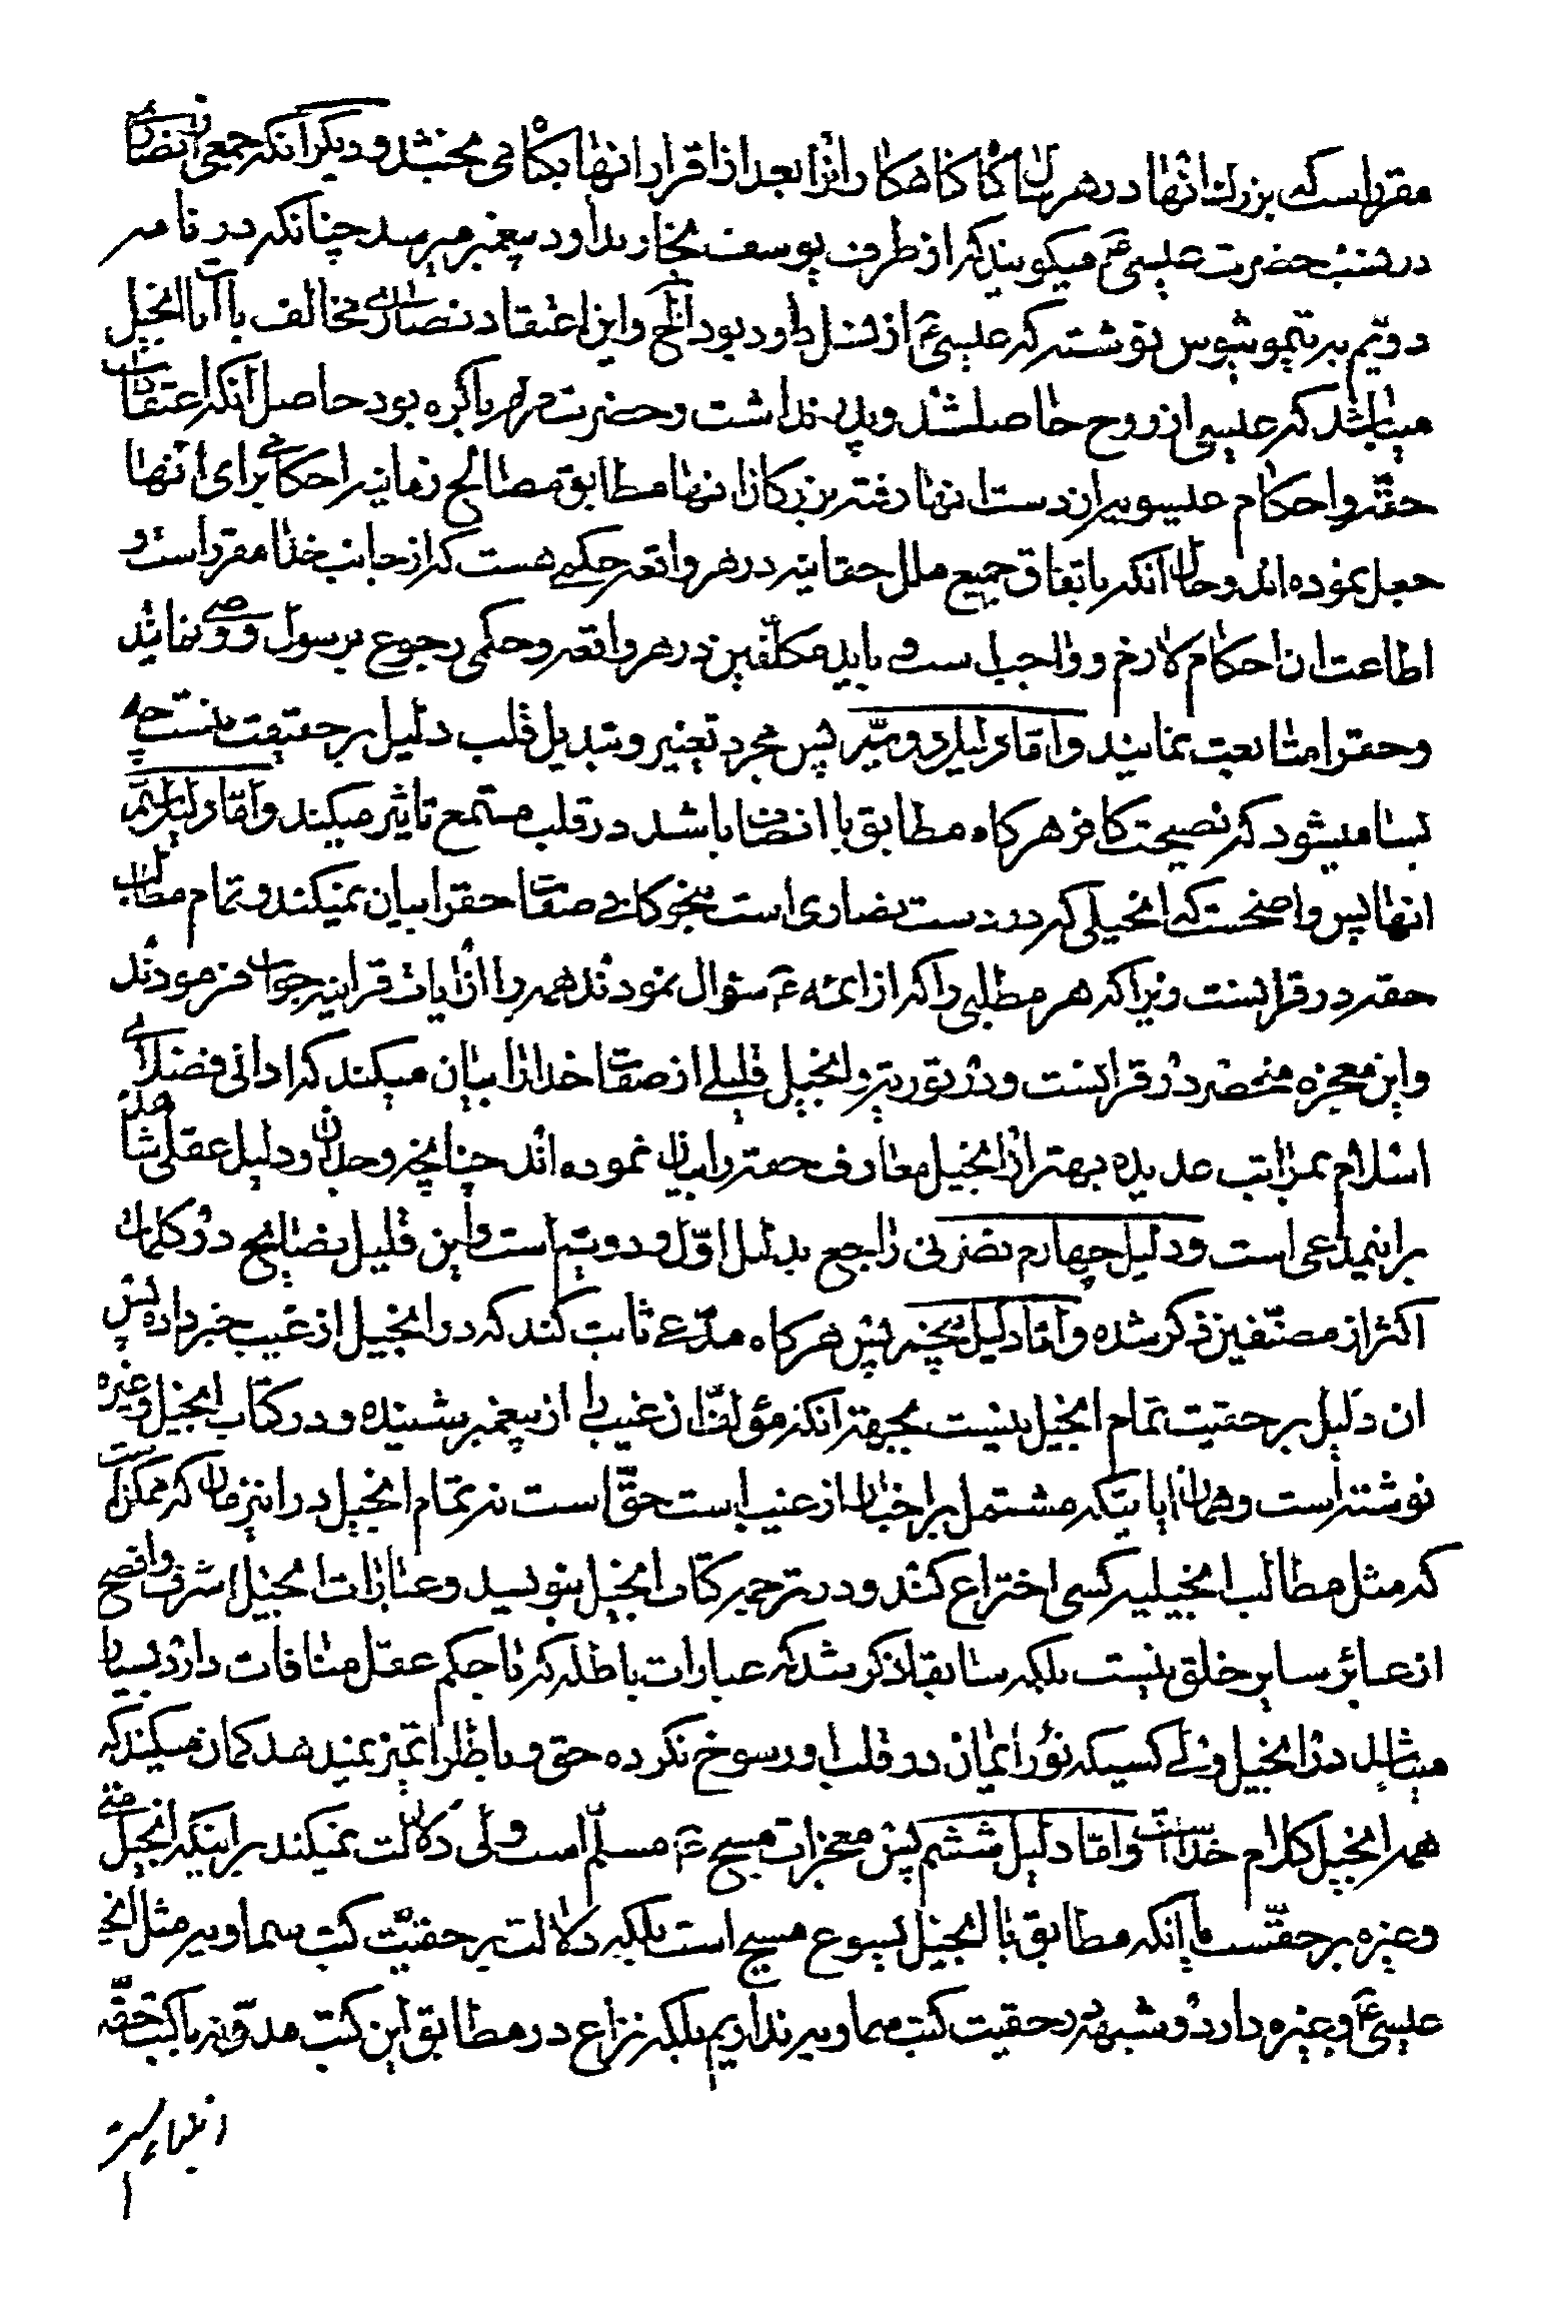 مقرر است که بزرك انها در هر سال کناه کناهکاران را بعد از اقرار انها بکناه می بخشد و دیکر آنکه جمعی از نصاری
در نسب حضرت عیسی ع میکویند که از طرف یوسف نجار بداود پیغمبر میرسد چنانکه در نامه
دویم به تیموتیوس نوشته که عیسی ع از نسل داود بود الخ و این اعتقاد نصاری مخالف با آیات انجیل
میباشد که عیسی از روح حاصلشد و پدر نداشت و حضرت مریم باکره بود حاصل آنکه اعتقادات
حقه و احکام عیسویه از دست انها رفته بزرکان انها مطابق مصالح زمانیه احکامی برای انها
جعل نموده اند و حال آنکه باتفاق جمیع ملل حقانیه در هر واقعه حکمی هست که از جانب خدا مقرر است و
اطاعت ان احکام لازم و واجب است و باید مکلفین در هر واقعه و حکمی رجوع برسول و وصی نمایند
و حق را متابعت نمایند و اما دلیل دویم پس مجرد تغییر و تبدیل قلب دلیل بر حقیقت نیست چه
بسا میشود که نصیحت کافر هرکاه مطابق با انصاف باشد در قلب مستمع تاثیر میکند و اما دلیل سیم
انها پس واضحست که انجیلی که در دست نصاری است بنحو کافی صفات حق را بیان نمیکند و تمام مطالب
حقه در قرانست زیرا که هر مطلبی را که از ائمه ع سؤال نمودند همه را از ایات قرانیه جواب فرمودند
و این معجزه منحصر در قرانست و در توریة و انجیل قلیلی از صفات خدا را بیان میکند که ادانی فضلای
اسلام بمراتب عدیده بهتر از انجیل معارف حقه را بیان نموده اند چنانچه وجدان و دلیل عقلی شاهد
بر اینمدعی است و دلیل چهارم نصرانی راجع بدلیل اول و دویم است و این قلیل نصایح در کلمات
اکثر از مصنفین ذکر شده و اما دلیل پنجم پس هرکاه مدعی ثابت کند که در انجیل از غیب خبر داده پس
ان دلیل بر حقیت تمام انجیل نیست بجهة انکه مؤلف ان غیب را از پیغمبر شنیده و در کتاب انجیل و غیره
نوشته است و همان ایاتیکه مشتمل بر اخبار از غیب است حق است نه تمام انجیل در اینزمان که ممکن است
که مثل مطالب انجیلیه کسی اختراع کند و در ترجمه کتاب انجیل بنویسد و عبارات انجیل اشرف و افصح
از عبائر سایر خلق نیست بلکه سابقا ذکر شد که عبارات باطله که با حکم عقل منافات دارد بسیار
میباشد در انجیل ولی کسیکه نور ایمان در قلب او رسوخ نکرده حق و باطل را تمیز نمیدهد کمان میکند که
همه انجیل کلام خداست و اما دلیل ششم پس معجزات مسیح ع مسلم است ولی دلالت نمیکند بر اینکه انجیل متی
و غیره بر حقست یا اینکه مطابق با انجیل یسوع مسیح است بلکه دلالت بر حقیت کتب سماویه مثل انجیل
عیسی ع و غیره دارد و شبهه در حقیت کتب سماویه نداریم بلکه نزاع در مطابق این کتب مدونه با کتب حقه